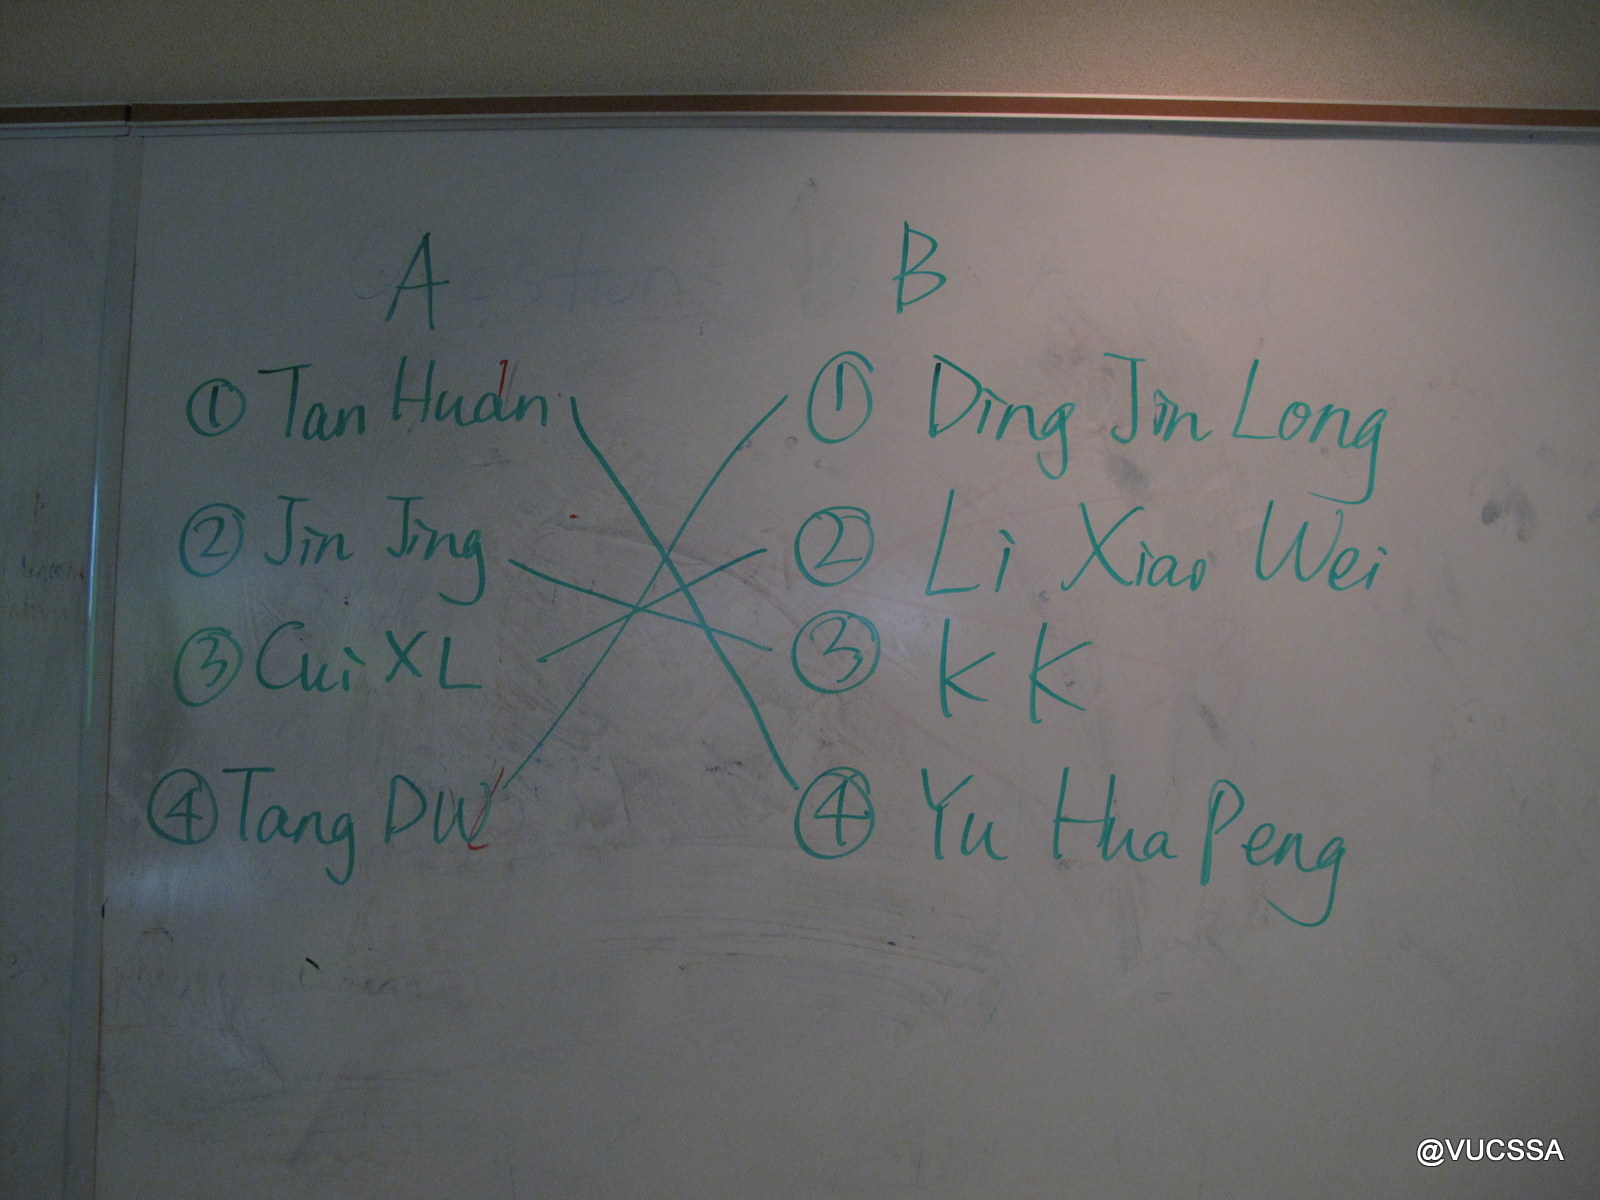 A B
① Tan Huan ① Ding Jin Long
② Jin Jing ② Li Xiao Wei
③ Cui XL ③ KK
④ Tang DW ④ Yu Hua Peng
@VUCSSA